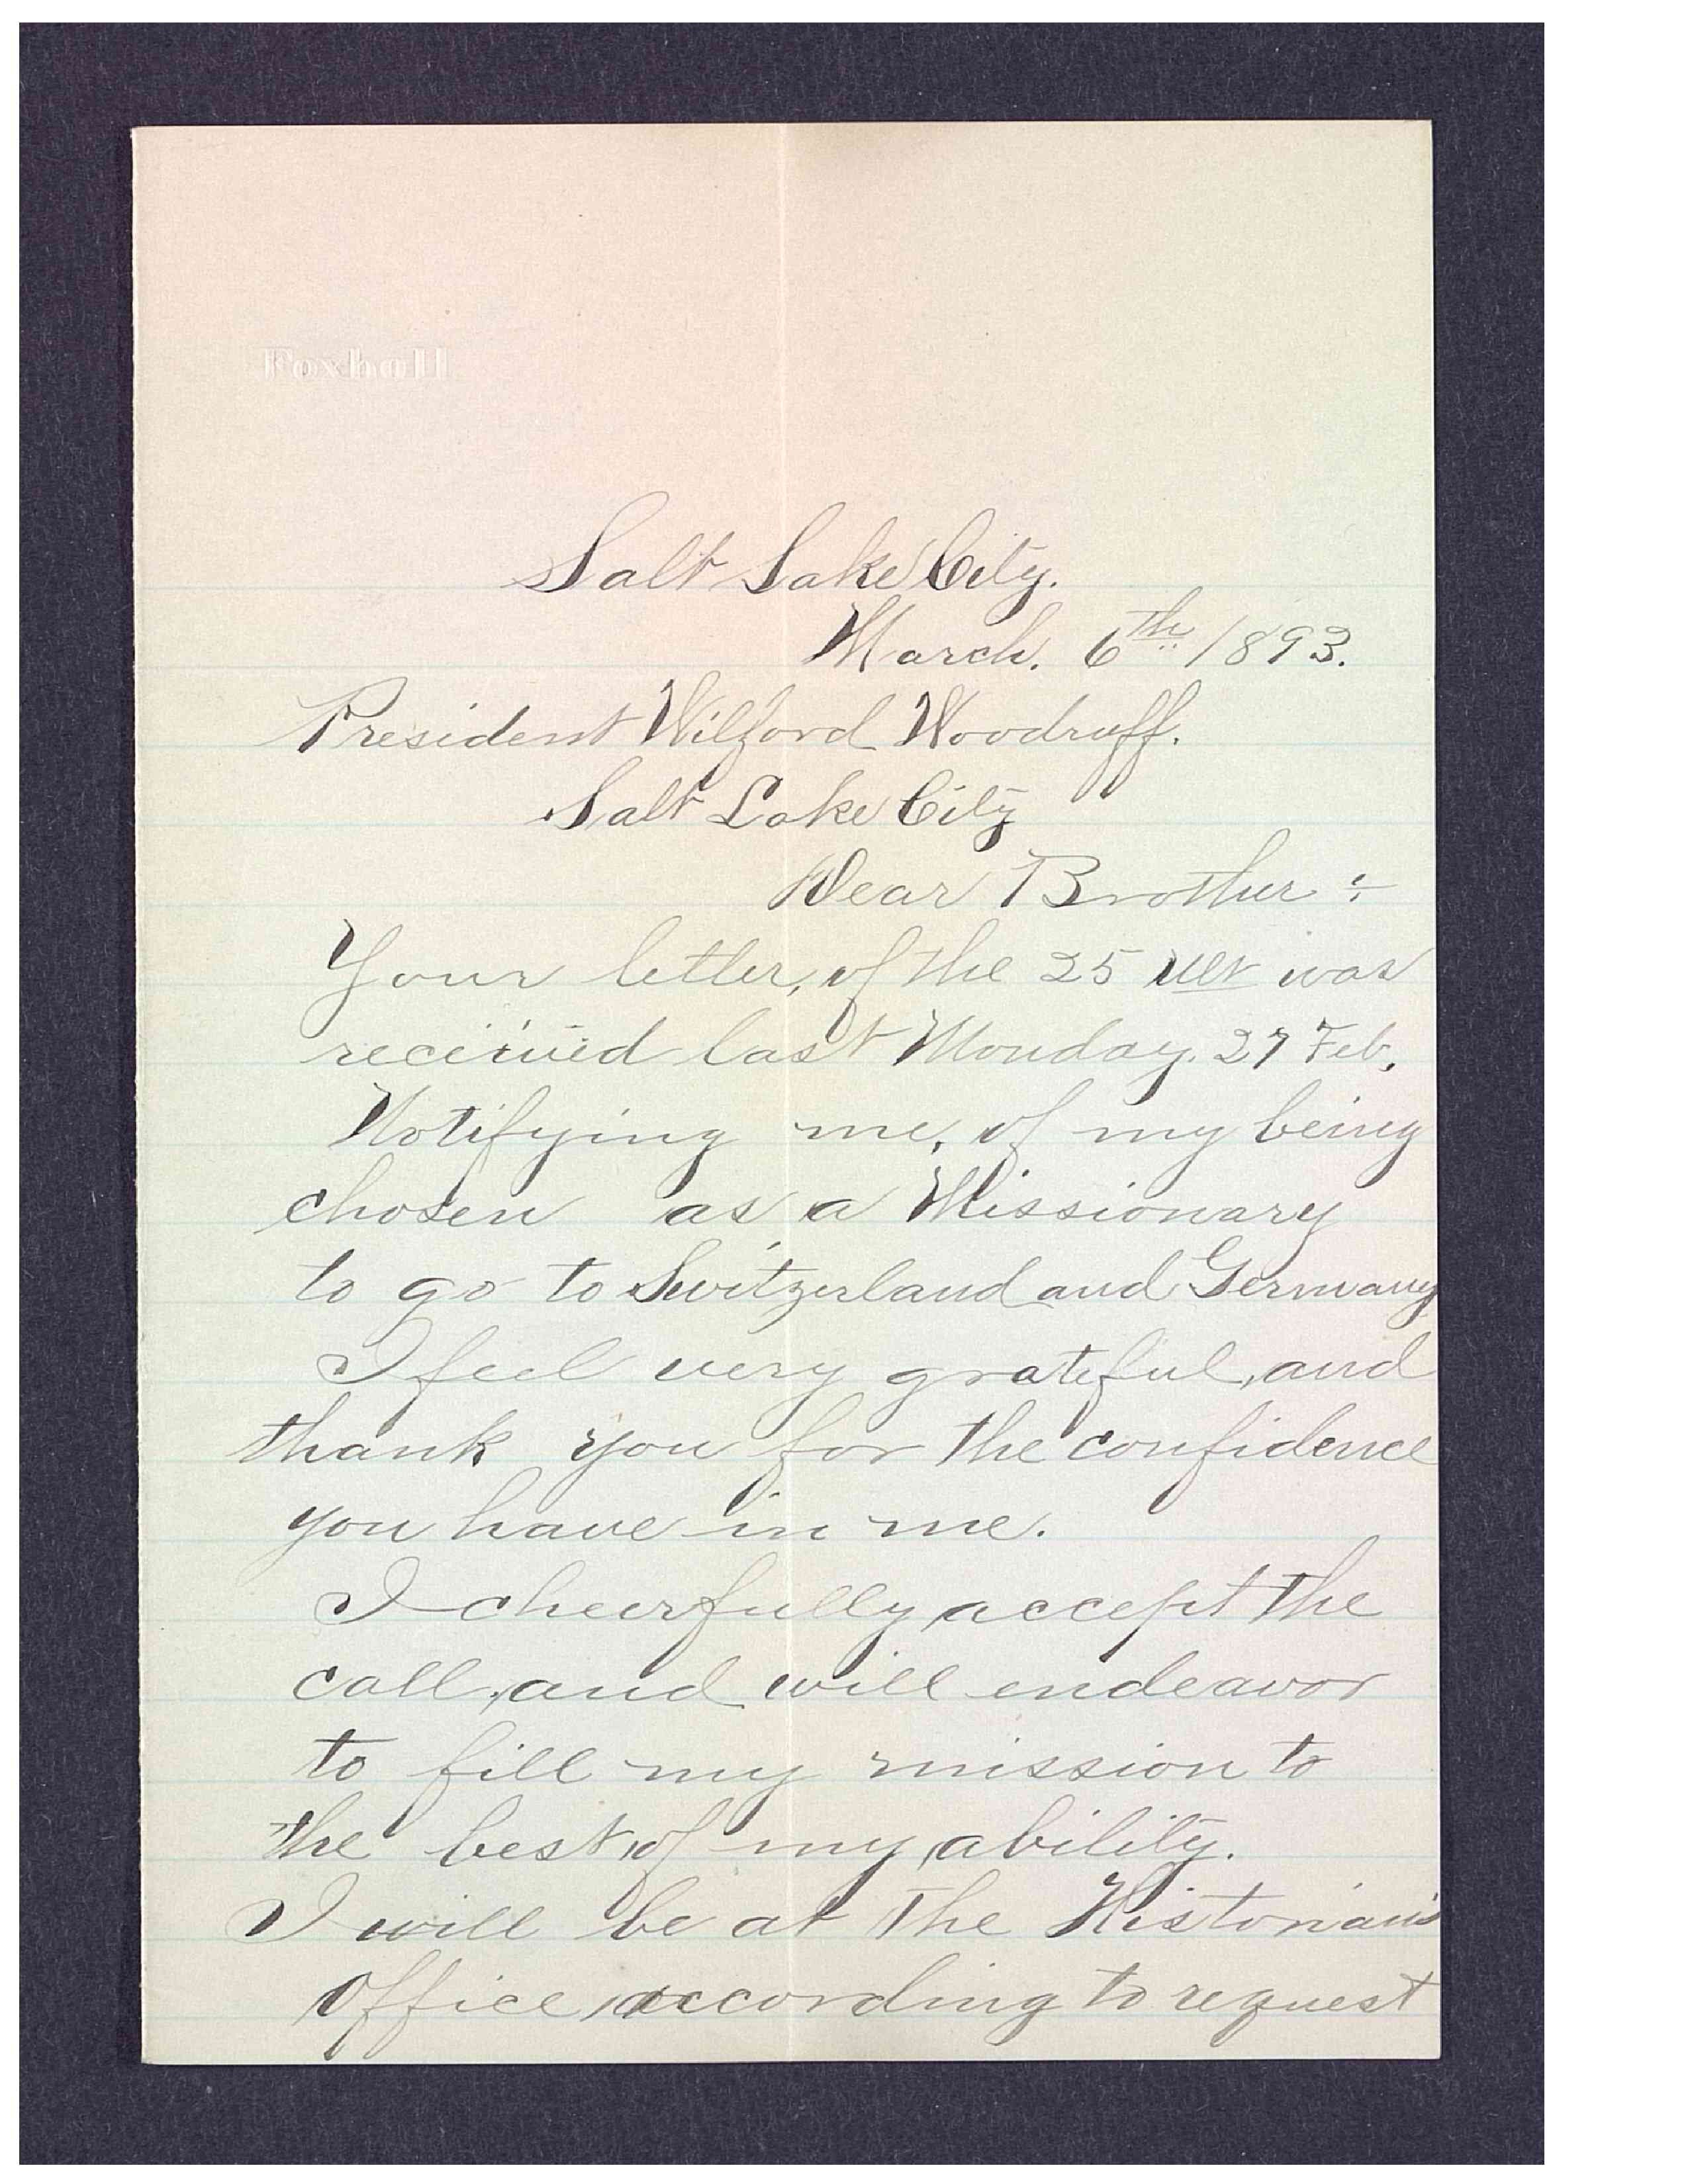 Foxhall
Salt Lake City.
March. 6th 1893.
President Wilford Woodruff.
Salt Lake City
Dear Brother :
Your letter, of the 25 ult was
received last Monday. 27 Feb.
Notifying me, of my being
chosen as a Missionary
to go to Switzerland and Germany.
I feel very grateful, and
thank you for the confidence
you have in me.
I cheerfully accept the
call, and will endeavor
to fill my mission to
the best of my ability.
I will be at the Historian's
Office, according to request